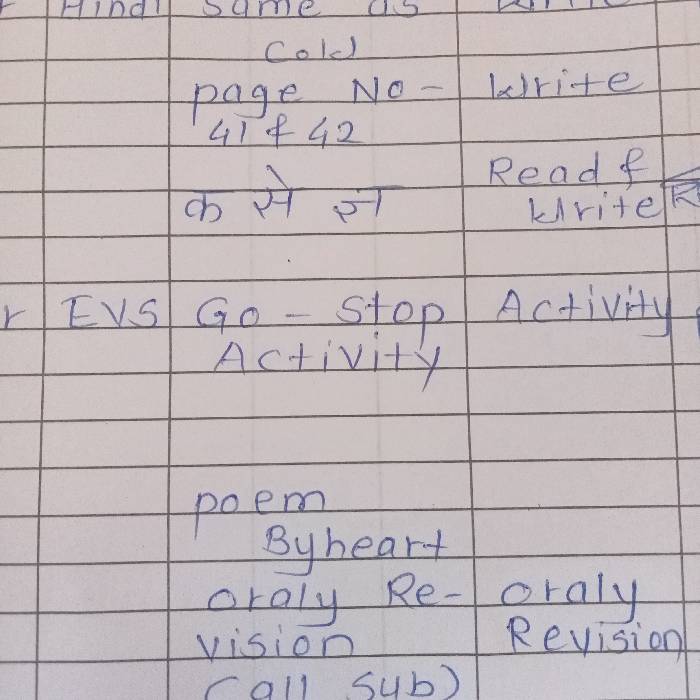 Hindi Same as Write
Cold
page No - Write
41 & 42
Read &
क से ज्ञ Write
EVS Go - Stop Activity
Activity
poem
Byheart
oraly Re- oraly
vision Revision
(all sub)